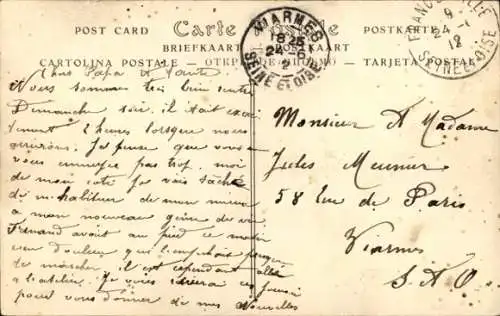 POST CARD Carte Postale POSTKARTE
BRIEFKAART POSTKAART
CARTOLINA POSTALE ОТКРЫТОЕ ПИСЬМО TARJETA POSTAL
VIARMES
18 25
24-9
SEINE ET OISE
FRANCONVILLE
9
2-1
12
SEINE ET OISE
Chers Papa et
Nous sommes très bien rentrés
Dimanche soir, il était exac
tement heures lorsque nous
arrivions. Je pense que vous
vous ennuyez pas trop, moi
de mon côté je vais tâcher
de m'habituer de mon mieux
à mon nouveau genre de vie
Fernand avait au pied ce matin
une douleur qui l'empêchait presque
de marcher, il est cependant allé
à l'atelier. Je vous
pour vous donner de mes Nouvelles
Monsieur & Madame
Jules Meunier
58 Rue de Paris
Viarmes
S & O